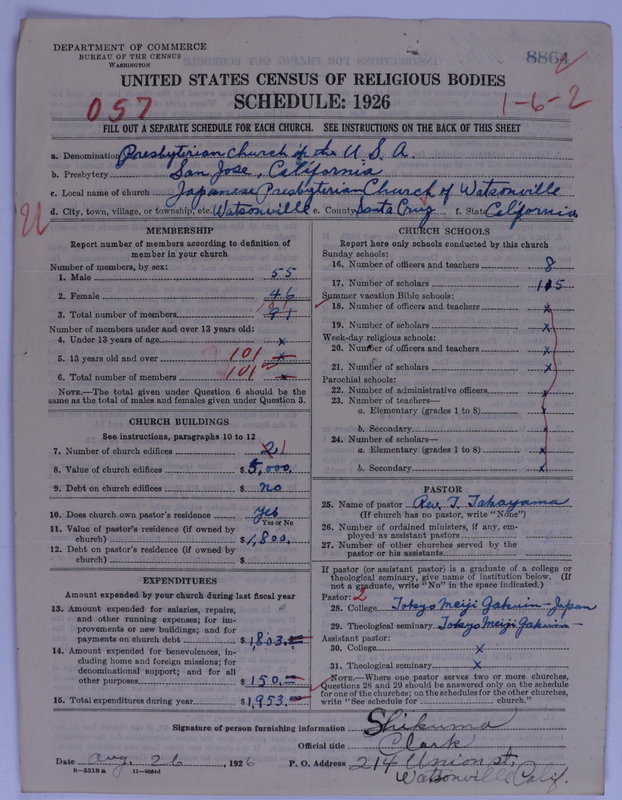 DEPARTMENT OF COMMERCE
BUREAU OF THE CENSUS
WASHINGTON
8864
UNITED STATES CENSUS OF RELIGIOUS BODIES
SCHEDULE: 1926
057
1-6-2
FILL OUT A SEPARATE SCHEDULE FOR EACH CHURCH. SEE INSTRUCTIONS ON THE BACK OF THIS SHEET
a. Denomination Presbyterian Church of the U. S. A.
b. Presbytery San Jose, California
c. Local name of church Japanese Presbyterian Church of Watsonville
d. City, town, village, or township, etc. Watsonville e. County Santa Cruz f. State California
U
MEMBERSHIP
Report number of members according to definition of
member in your church
Number of members, by sex:
1. Male 55
2. Female 46
3. Total number of members 91
Number of members under and over 13 years old:
4. Under 13 years of age x
5. 13 years old and over 101 x
6. Total number of members 101 x
NOTE.—The total given under Question 6 should be the
same as the total of males and females given under Question 3.
CHURCH BUILDINGS
See instructions, paragraphs 10 to 12
7. Number of church edifices 2 1
8. Value of church edifices $ 5,000.
9. Debt on church edifices $ no
10. Does church own pastor's residence Yes
Yes or No
11. Value of pastor's residence (if owned by
church) $ 1,800.
12. Debt on pastor's residence (if owned by
church) $
EXPENDITURES
Amount expended by your church during last fiscal year
13. Amount expended for salaries, repairs,
and other running expenses; for im-
provements or new buildings; and for
payments on church debt $ 1,803.
14. Amount expended for benevolences, in-
cluding home and foreign missions; for
denominational support; and for all
other purposes $ 150.
15. Total expenditures during year $ 1,953.
CHURCH SCHOOLS
Report here only schools conducted by this church
Sunday schools:
16. Number of officers and teachers 8
17. Number of scholars 115
Summer vacation Bible schools:
18. Number of officers and teachers x
19. Number of scholars x
Week-day religious schools:
20. Number of officers and teachers x
21. Number of scholars x
Parochial schools:
22. Number of administrative officers x
23. Number of teachers—
a. Elementary (grades 1 to 8) x
b. Secondary x
24. Number of scholars—
a. Elementary (grades 1 to 8) x
b. Secondary x
PASTOR
25. Name of pastor Rev. T. Takayama
(If church has no pastor, write "None")
26. Number of ordained ministers, if any, em-
ployed as assistant pastors
27. Number of other churches served by the
pastor or his assistants
If pastor (or assistant pastor) is a graduate of a college or
theological seminary, give name of institution below. (If
not a graduate, write "No" in the space indicated.)
Pastor: 2
28. College Tokyo Meiji Gakuin - Japan
29. Theological seminary Tokyo Meiji Gakuin -
Assistant pastor:
30. College x
31. Theological seminary x
NOTE.—Where one pastor serves two or more churches,
Questions 28 and 29 should be answered only on the schedule
for one of the churches; on the schedules for the other churches,
write "See schedule for church."
Signature of person furnishing information Shikuma
Official title Clark
Date Aug. 26 1926 P. O. Address 214 Union st,
Watsonville Calif.
8-5518 a